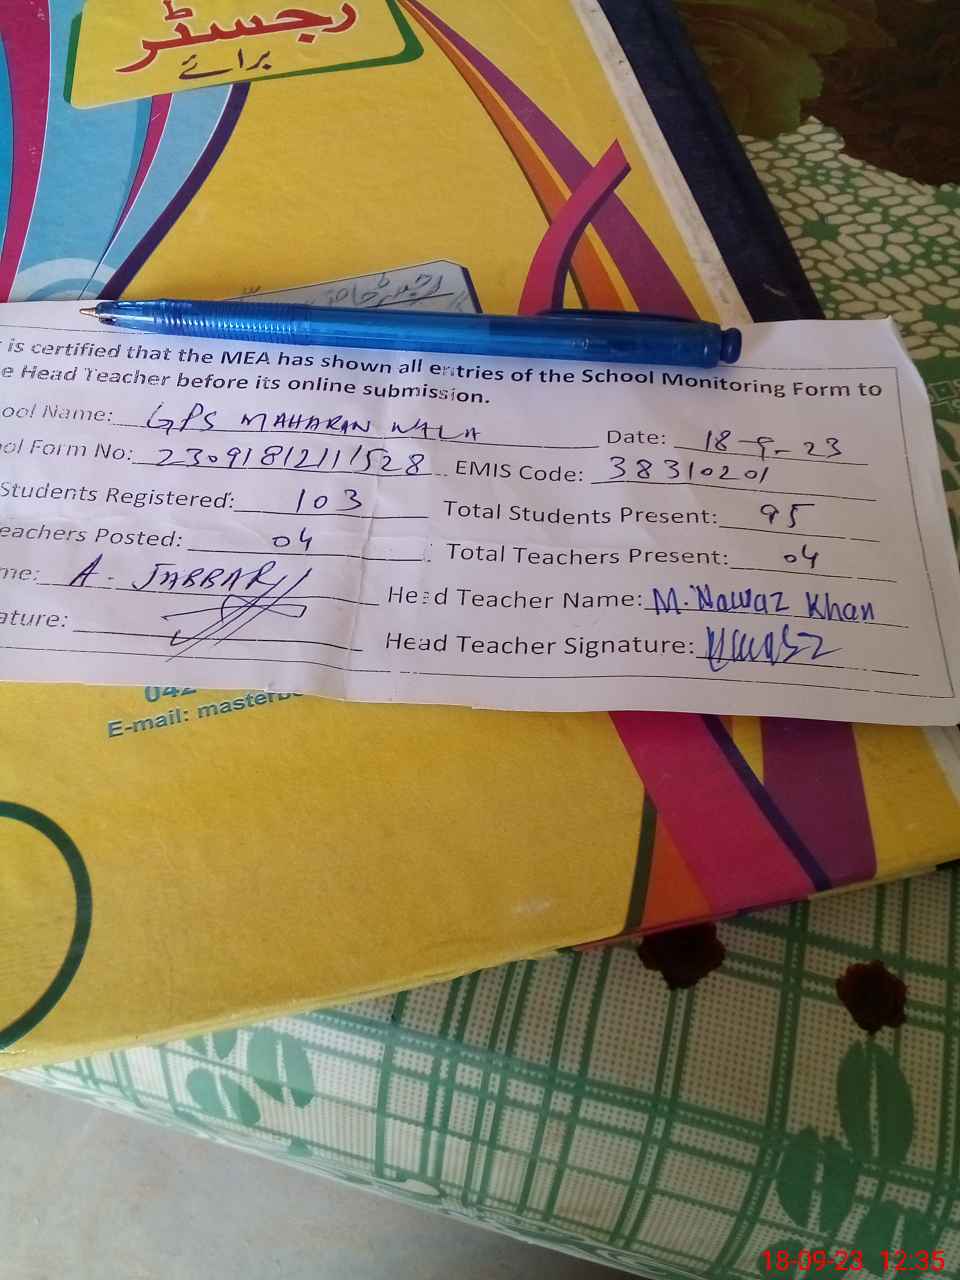 رجسٹر
برائے
is certified that the MEA has shown all entries of the School Monitoring Form to
e Head Teacher before its online submission.
ool Name: GPS MAHARAN WALA Date: 18-9-23
ol Form No: 23091812111528 EMIS Code: 38310201
Students Registered: 103 Total Students Present: 95
eachers Posted: 04 Total Teachers Present: 04
me: A. JABBAR Head Teacher Name: M. Nawaz Khan
ature: Head Teacher Signature:
042
E-mail: master
18-09-23 12:35